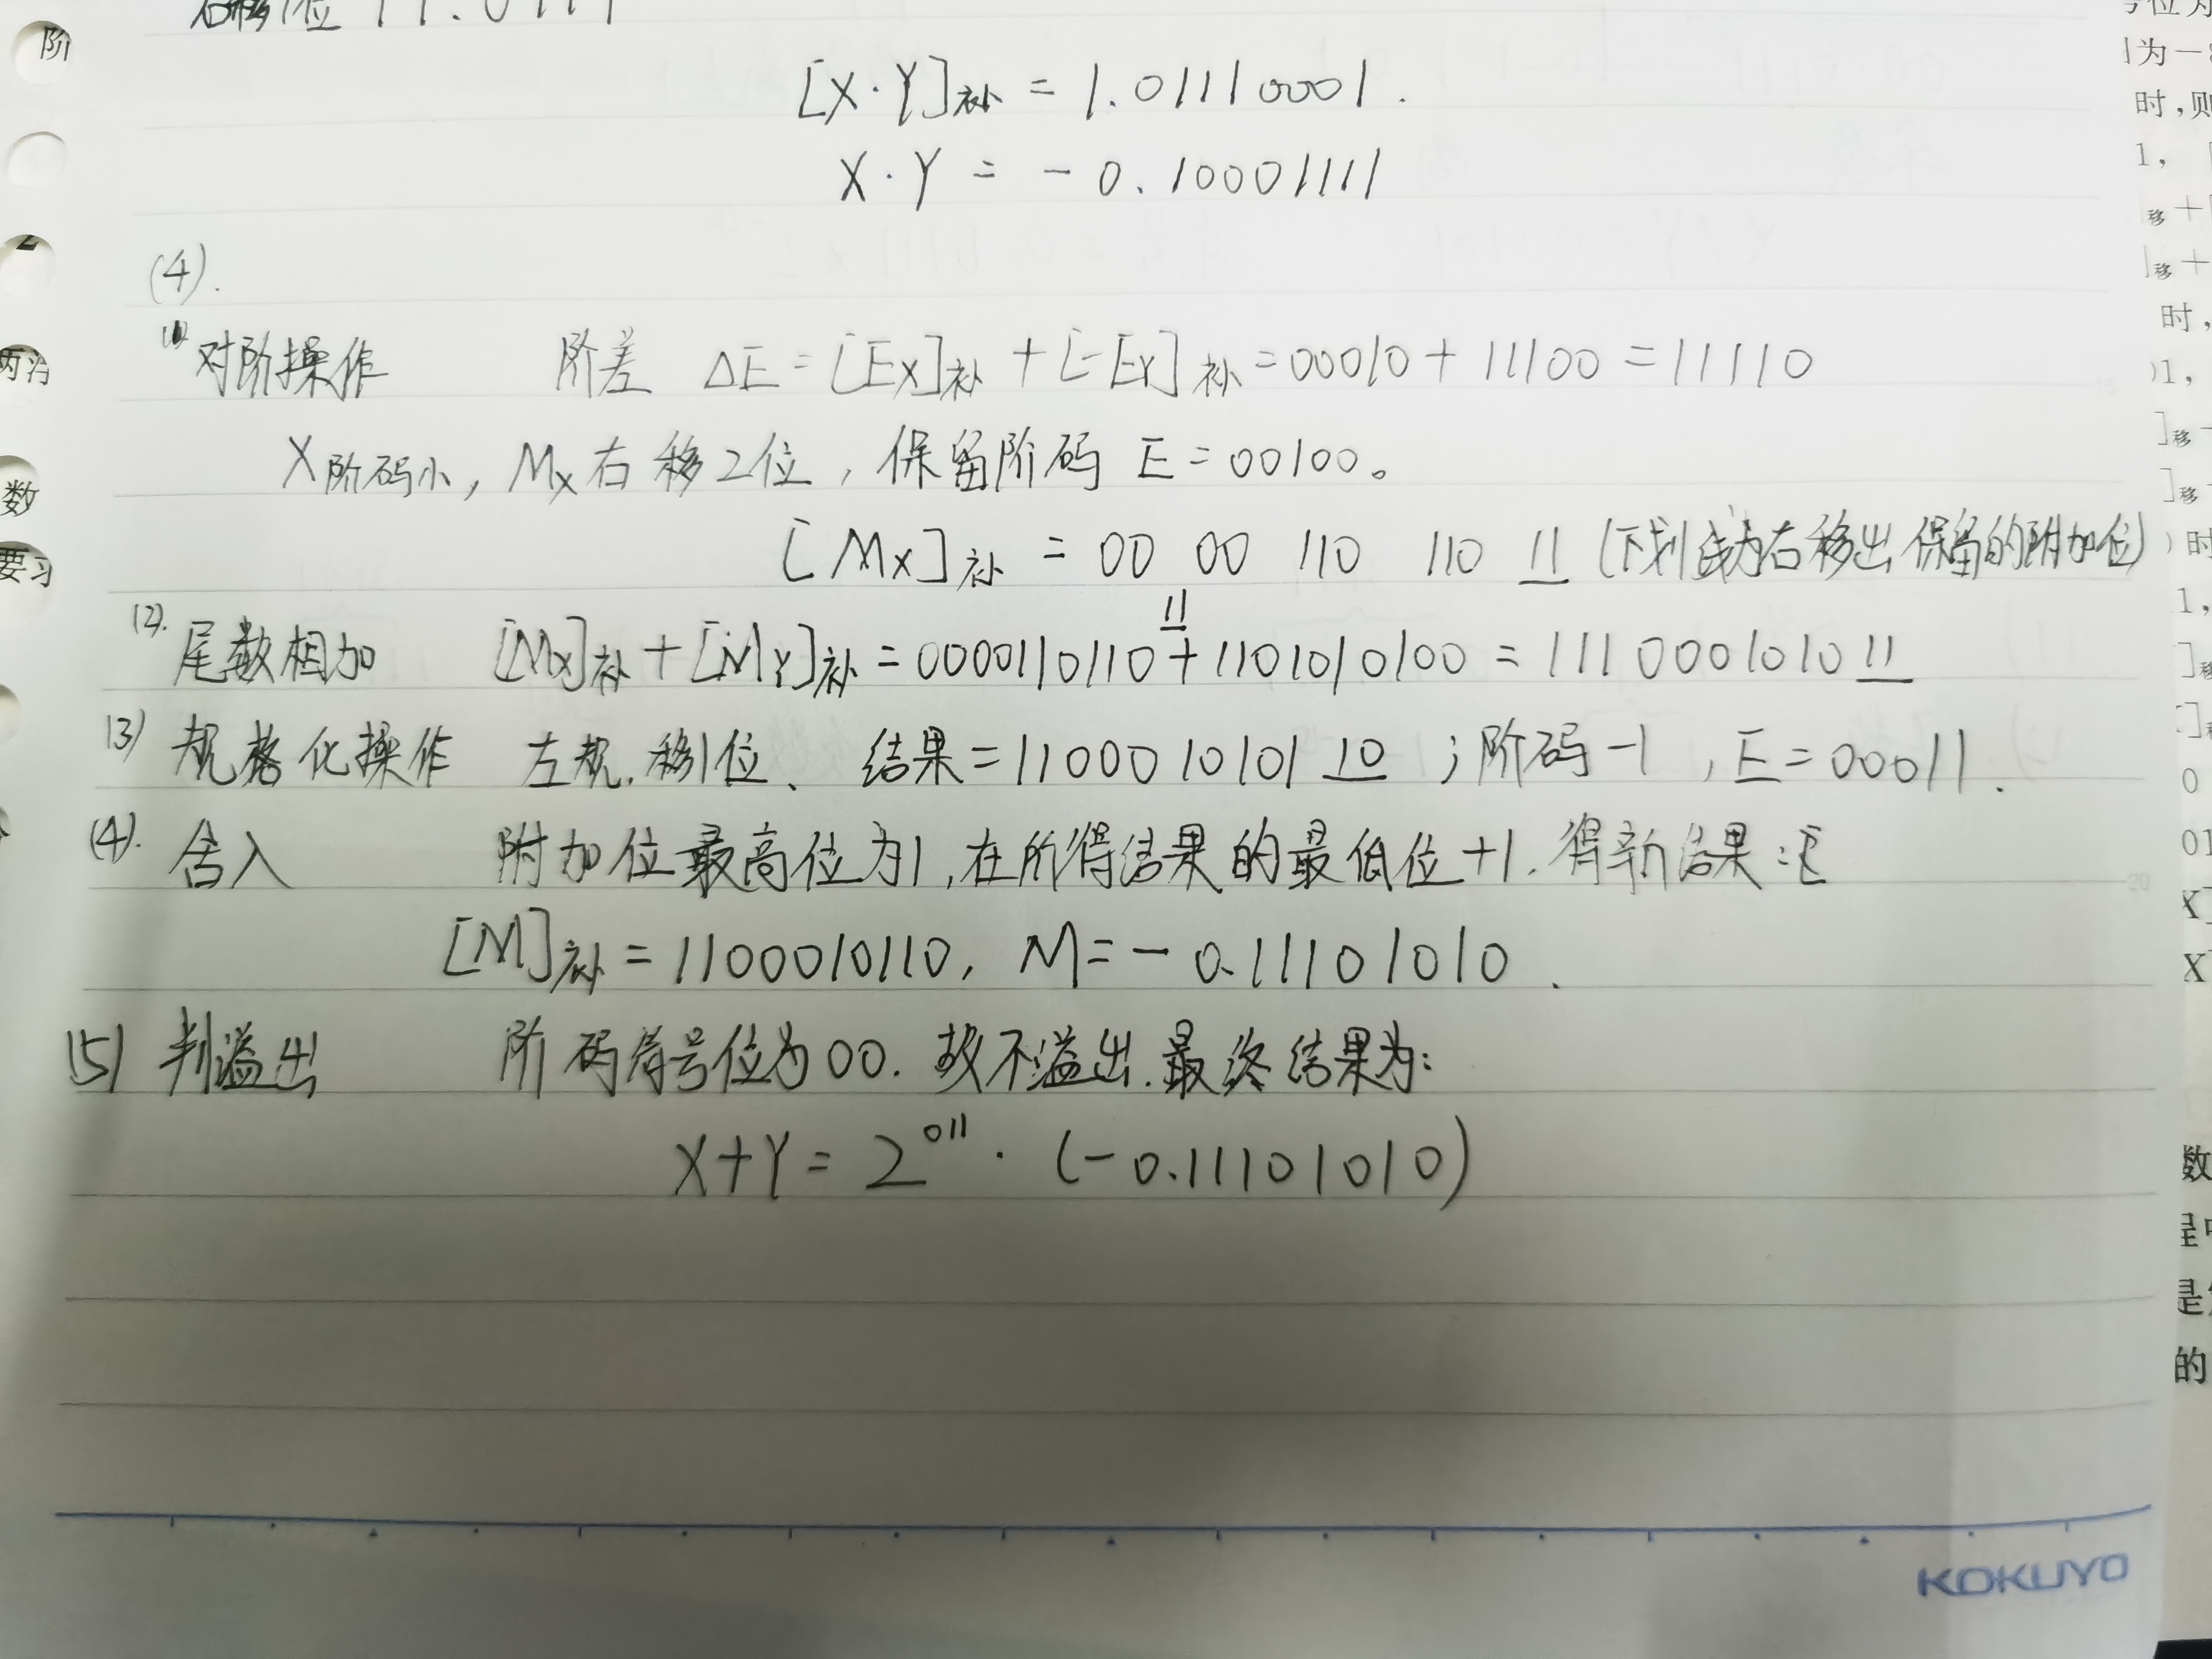 右移1位 11.0111
[X·Y]补 = 1.01110001.
X·Y = -0.10001111
(4).
(1) 对阶操作 阶差 ΔE=[Ex]补+[-EY]补=00010+11100=11110
X阶码小, Mx右移2位, 保留阶码 E=00100。
[Mx]补 = 00 00 110 110 11 (下划线为右移出保留的附加位)
(2). 尾数相加 [Mx]补+[MY]补=0000110110 11+1101010100=1110001010 11
(3) 规格化操作 左规.移1位、 结果=1100010101 10 ;阶码-1, E=00011.
(4). 舍入 附加位最高位为1,在所得结果的最低位+1.得新结果:
[M]补=1100010110, M=-0.11101010.
(5) 判溢出 阶码符号位为00. 故不溢出.最终结果为:
X+Y=2^011·(-0.11101010)
KOKUYO
阶
数
要习
号位为
为-8
时,则
1,
移+
移+
时,
1,
移
移
时
1,
0
01
X
X
数
是
的